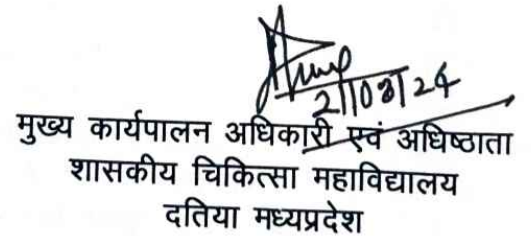 21/08/24
मुख्य कार्यपालन अधिकारी एवं अधिष्ठाता
शासकीय चिकित्सा महाविद्यालय
दतिया मध्यप्रदेश